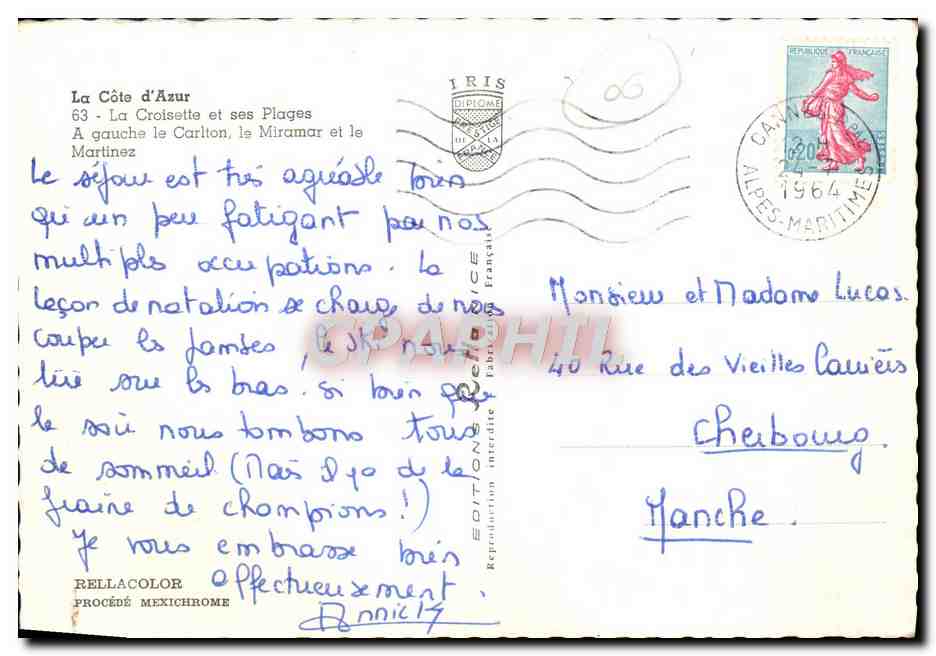 La Côte d'Azur
63 - La Croisette et ses Plages
A gauche le Carlton, le Miramar et le
Martinez
Le séjour est très agréable bien
qu'un peu fatigant par nos
multiples occupations. La
leçon de natation se charge de nous
couper les jambes, le ski nous
tire sur les bras. Si bien que
le soir nous tombons tous
de sommeil (Mais il y a de la
graine de champions!)
Je vous embrasse bien
affectueusement.
Annick
RELLACOLOR
PROCÉDÉ MEXICHROME
IRIS
DIPLOME
PRESTIGE
DE LA
FRANCE
EDITIONS Rella NICE
Reproduction interdite Fabrication Française
CPARPHIL
06
REPUBLIQUE FRANÇAISE
0,20
POSTES
CANNES
1964
ALPES-MARITIMES
Monsieur et Madame Lucas.
40 Rue des Vieilles Carrières
Cherbourg.
Manche.